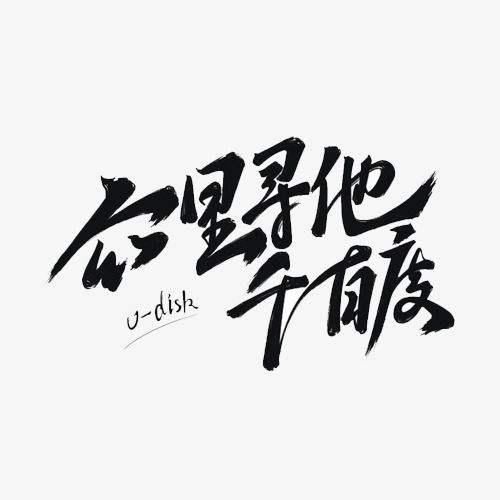 众里寻他
千百度
u-disk